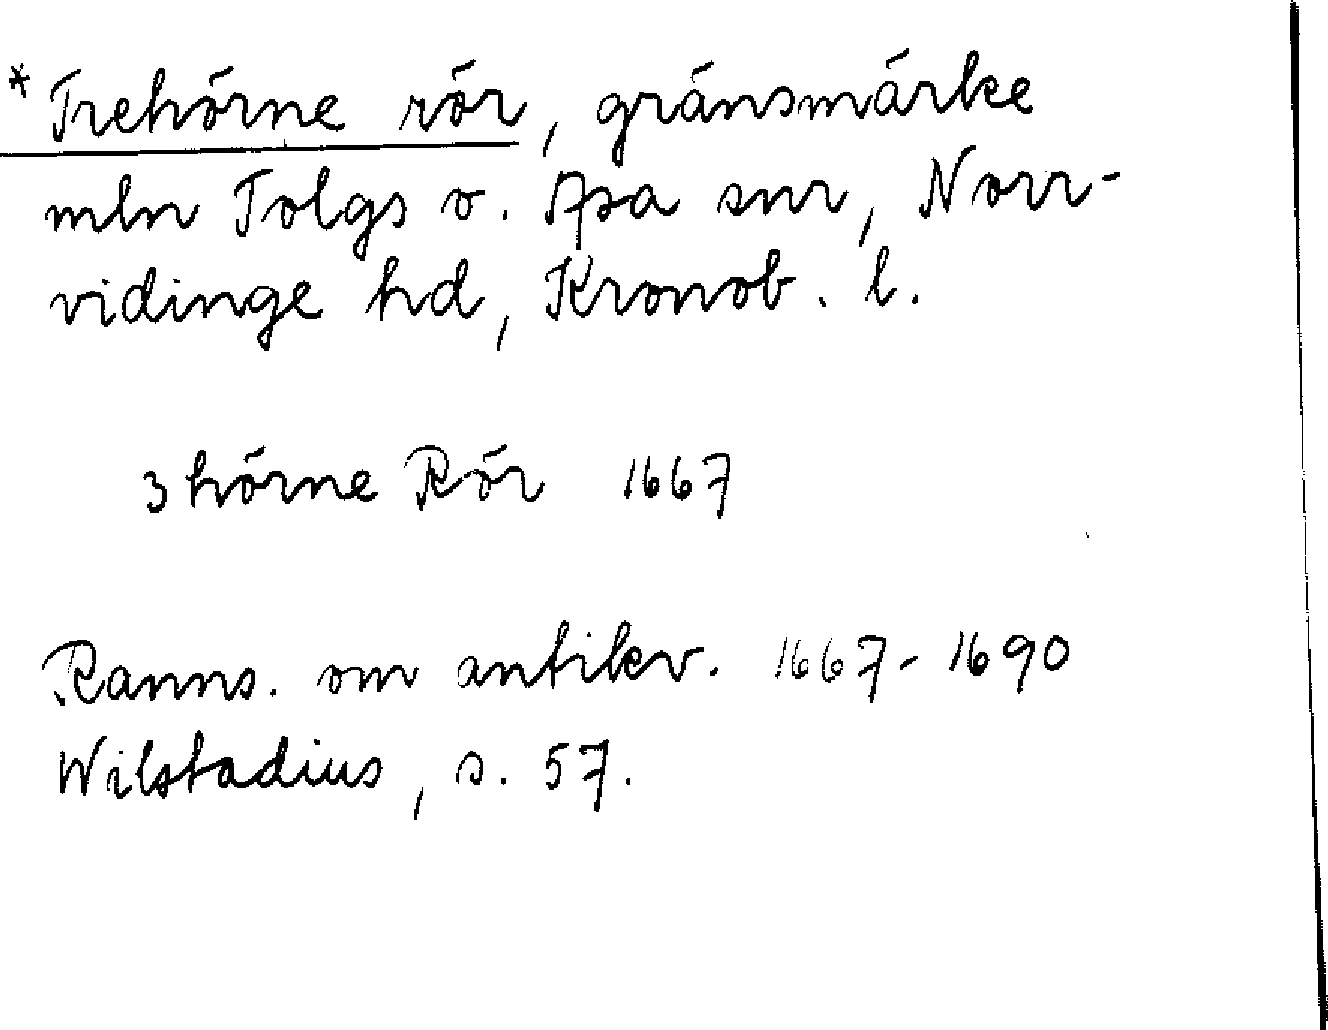 *Trehörne rör, gränsmärke
mln Tolgs o. Asa snr, Norr-
vidinge hd, Kronob. l.
3 hörne Rör 1667
Ranns. om antikv. 1667-1690
Wilstadius, s. 57.